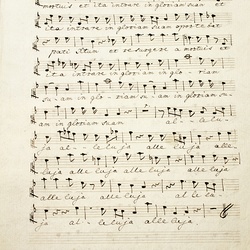 mortuis et ita intrare in gloriam suam et
ita intrare in gloriam suam oportebat
pati Christum et resurgere a mortuis et
ita intrare in gloriam in gloriam
suam in gloriam suam in gloriam su-
am in gloriam suam al-le-lu-
ja al-leluja alle
luja alle luja alle luja alle
luja alle luja alle luja al le lu-
ja al-leluja alle luja.